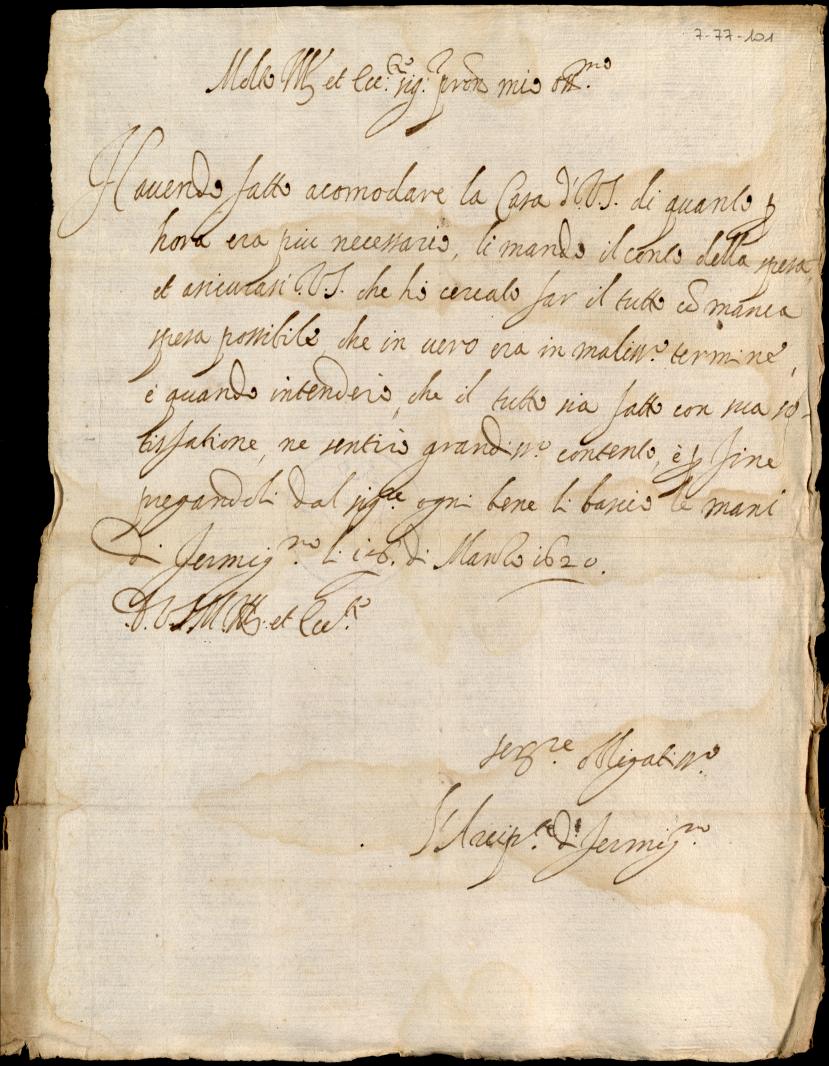 7-77-101
Molto Ill. et Ecc.te sig.r pron mio oss.mo
Havendo fatto acomodare la Casa d'V.S. di quanto p
hora era piu necessario, li mando il conto della spesa,
et asicurasi V.S. che hò cercato far il tutto cō manca
spesa possibile che in uero era in maliss.o termine,
e quando intenderò, che il tutto sia fatto con sua so-
tisfatione, ne sentirò grandiss.o contento, è p fine
pregandoli dal sig.re ogni bene li bascio le mani
di Fermig.no li 126. di Marzo 1620.
D.V.S.M. Ill. et Ecc.te
ser.re obligatiss.o
l'Arcip.te di Fermig.no